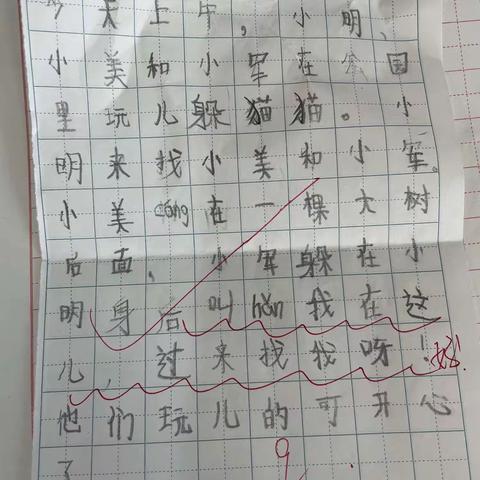 今天上午，小明、
小美和小军在公园
里玩儿躲猫猫。小
明来找小美和小军。
小美cáng在一棵大树
后面，小军躲在小
明身后叫hǎn我在这
儿，过来找我呀！好！
他们玩儿的可开心
了
9